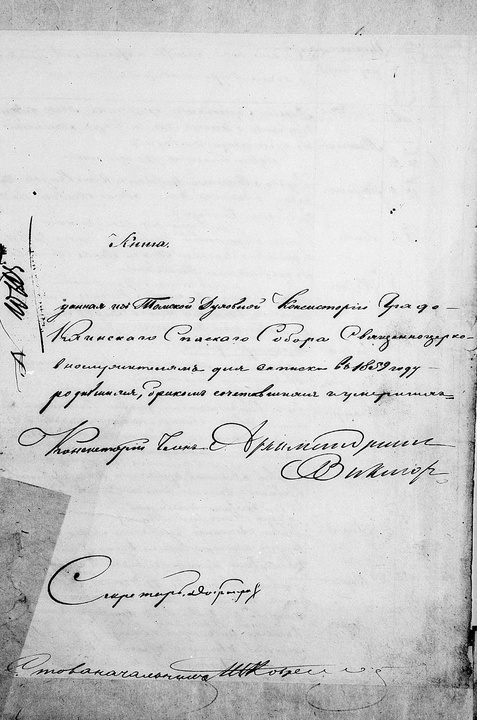 Книга,
данная изъ Томской Духовной Консисторіи Градо-
Каинскаго Спаскаго Собора Священноцерко-
внослужителямъ для записки въ 1859 году
родившихся, бракомъ сочетавшихся и умершихъ
Консисторіи Членъ Архимандритъ
Викторъ
Секретарь
Столоначальникъ